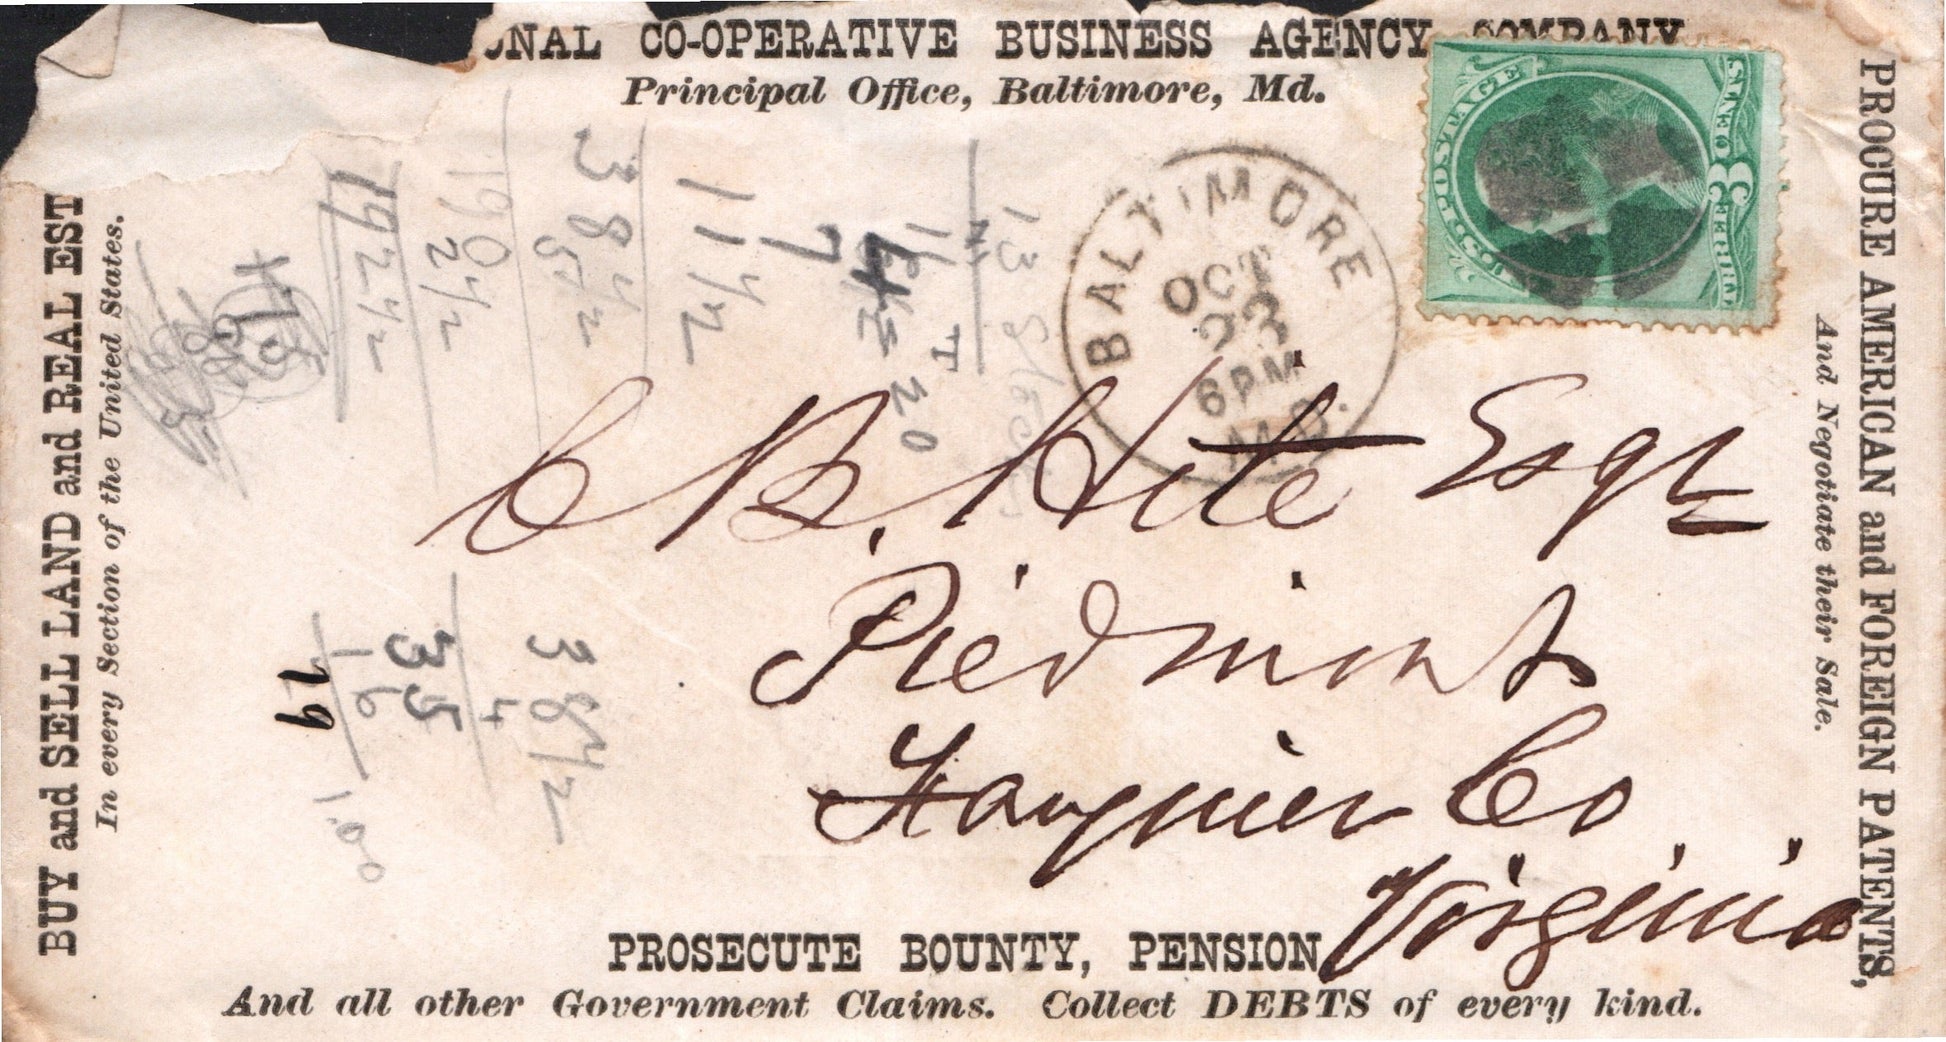 ONAL CO-OPERATIVE BUSINESS AGENCY COMPANY
Principal Office, Baltimore, Md.
BUY and SELL LAND and REAL EST
In every Section of the United States.
PROCURE AMERICAN and FOREIGN PATENTS,
And Negotiate their Sale.
POSTAGE
3
BALTIMORE
OCT
23
6PM
MD.
C B. Hite Esqr
Piedmont
Fauquier Co
Virginia
PROSECUTE BOUNTY, PENSION
And all other Government Claims. Collect DEBTS of every kind.
11 1/2
7
20
38 1/2
5 1/2
190
2 1/2
192 1/2
38 1/2
4
35
16
19
1.00